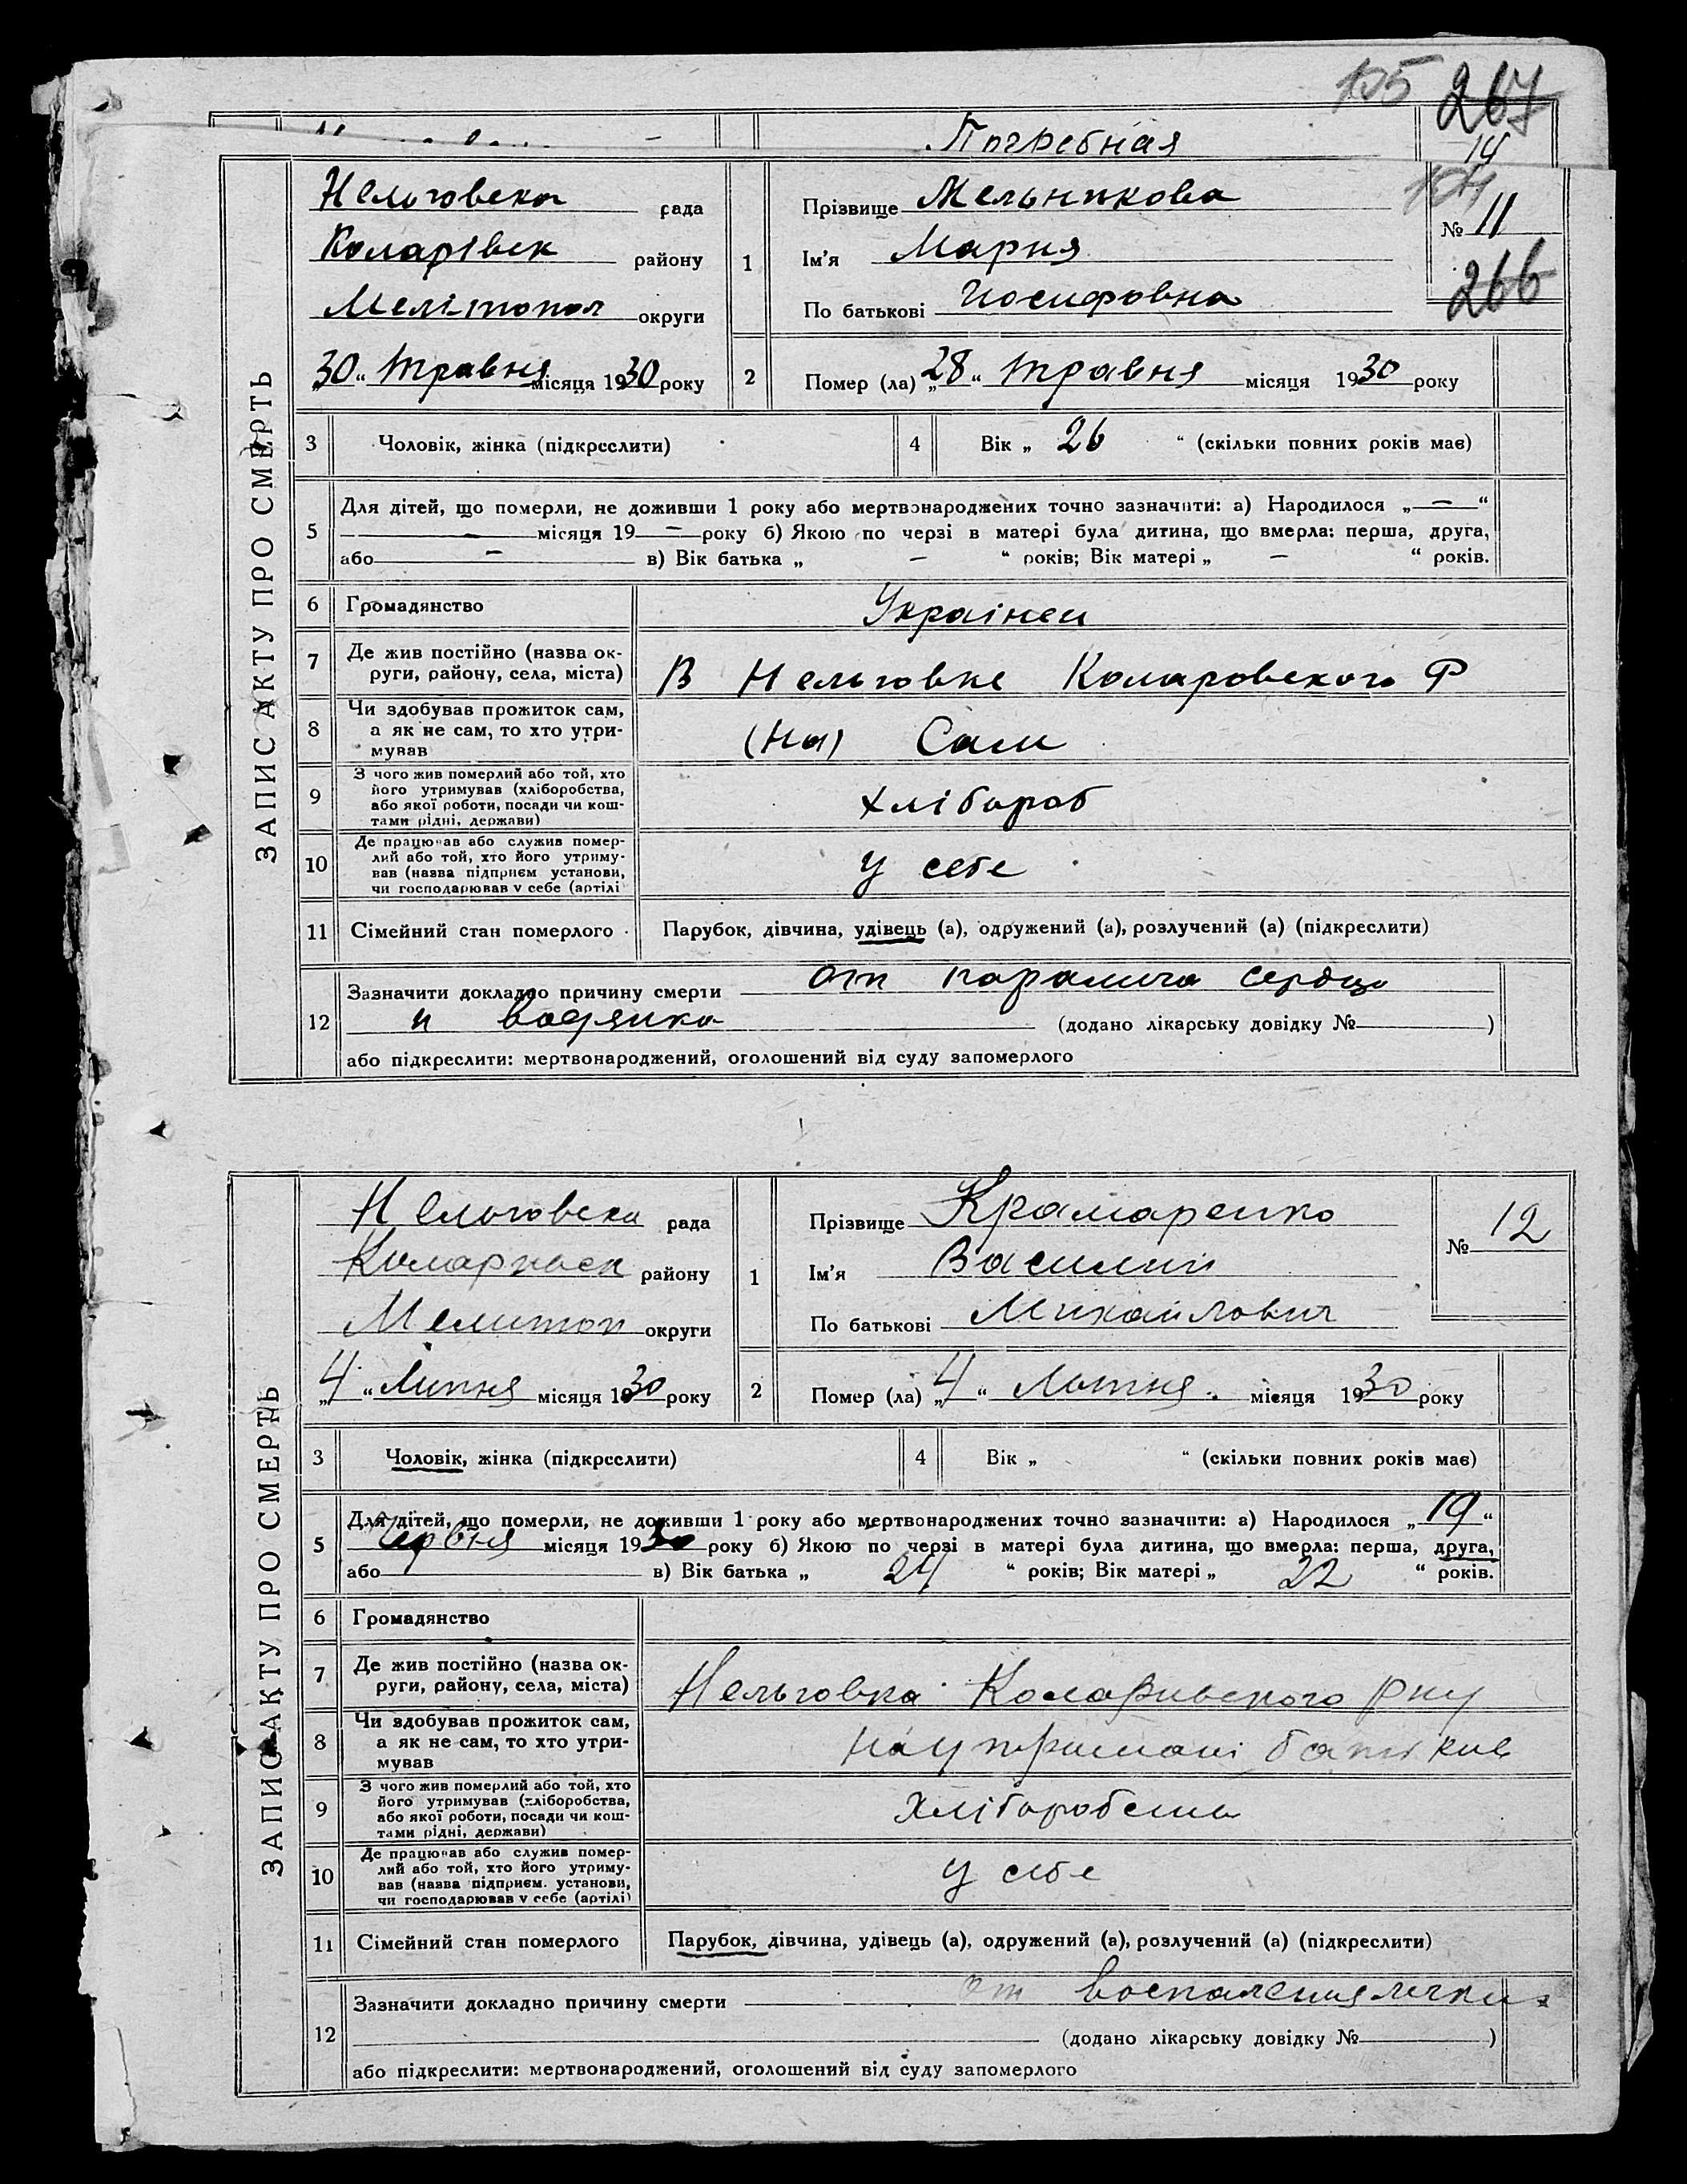 105 267
Погребная
14
ЗАПИС АКТУ ПРО СМЕРТЬ
Нельговска рада
Коларівск району
Мелітопол округи
„30“ Травня місяця 1930 року
1
Прізвище Мельникова
Ім'я Мария
По батькові Иосифовна
104
№ 11
266
2
Помер (ла) „28“ Травня місяця 1930 року
3 Чоловік, жінка (підкреслити)
4 Вік „ 26 “ (скільки повних років має)
5
Для дітей, що померли, не доживши 1 року або мертвонароджених точно зазначити: а) Народилося „—“
— місяця 19 — року б) Якою по черзі в матері була дитина, що вмерла: перша, друга,
або — в) Вік батька „ — “ років; Вік матері „ — “ років.
6 Громадянство Українец
7 Де жив постійно (назва ок-
руги, району, села, міста) В Нельговке Коларовского Р
8 Чи здобував прожиток сам,
а як не сам, то хто утри-
мував (на) Сам
9 З чого жив померлий або той, хто
його утримував (хліборобства,
або якої роботи, посади чи кош-
тами рідні, держави) хлібороб
10 Де працював або служив помер-
лий або той, хто його утриму-
вав (назва підприєм установи,
чи господарював у себе (артілі у себе
11 Сімейний стан померлого Парубок, дівчина, удівець (а), одружений (а), розлучений (а) (підкреслити)
12
Зазначити докладно причину смерти от паралича сердца
и водянка (додано лікарську довідку № )
або підкреслити: мертвонароджений, оголошений від суду запомерлого
ЗАПИС АКТУ ПРО СМЕРТЬ
Нельговска рада
району
Мелитоп округи
„4“ Липня місяця 1930 року
1
Прізвище Крамаренко
Ім'я Василий
По батькові Михайлович
№ 12
2
Помер (ла) „4“ місяця 1930 року
3 Чоловік, жінка (підкреслити)
4 Вік „ “ (скільки повних років має)
5
Для дітей, що померли, не доживши 1 року або мертвонароджених точно зазначити: а) Народилося „19“
Червня місяця 1930 року б) Якою по черзі в матері була дитина, що вмерла: перша, друга,
або в) Вік батька „ 24 “ років; Вік матері „ 22 “ років.
6 Громадянство
7 Де жив постійно (назва ок-
руги, району, села, міста) Нельговка Коларивского рну
8 Чи здобував прожиток сам,
а як не сам, то хто утри-
мував на утримані батьків
9 З чого жив померлий або той, хто
його утримував (хліборобства,
або якої роботи, посади чи кош-
тами рідні, держави)
10 Де працював або служив помер-
лий або той, хто його утриму-
вав (назва підприєм. установи,
чи господарював у себе (артілі) у себе
11 Сімейний стан померлого Парубок, дівчина, удівець (а), одружений (а), розлучений (а) (підкреслити)
12
Зазначити докладно причину смерти от воспаления легких
(додано лікарську довідку № )
або підкреслити: мертвонароджений, оголошений від суду запомерлого